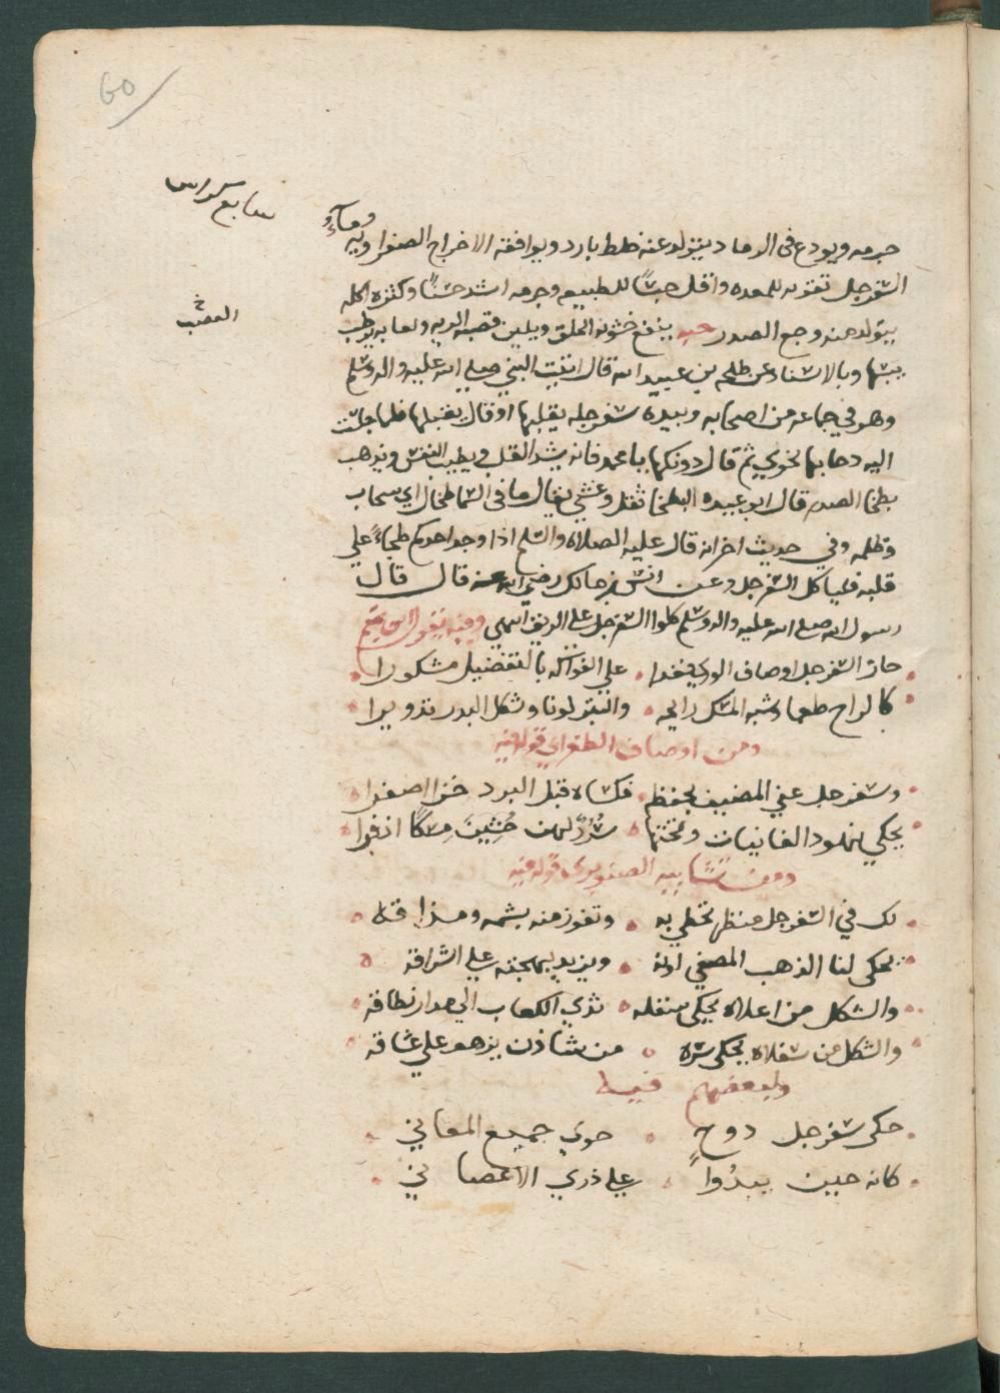 60
سابع كراس
جرمه ويودع في الرماد يتولد عنه خلط بارد ويوافقه الاخراج الصفرا وبه وماؤ
السفرجل تقويه للمعده واقل حبسًا للطبيعه وجرمه اشد حبسًا وكثرة اكله
العصب
يتولد منه وجع الصدر حبه ينفع خشونة الحلق ويلين قصبه الريه ولعابه يرطب
يبسها وبالاسناد عن طلحه بن عبيد الله قال اتيت النبي صلي الله عليه واله وسلم
وهو في جماعه من اصحابه وبيده سفرجله يقبلها او قال يقلبها فلما جلست
اليه دحا بها نحوي ثم قال دونكها يا با محمد فانه يشد القلب ويطيب النفس ويذهب
بطخا الصدر قال ابو عبيده الطخا ثقل وغشي يقال ما في السما طخا اي سحاب
وظلمه وفي حديث اخر انه قال عليه الصلاه والسلم اذا وجد احدكم طخاءً علي
قلبه فلياكل السفرجل وعن انس بن مالك رضي الله عنه قال قال
رسول الله صلي الله عليه واله وسلم كلوا السفرجل علي الريق انتهي وفيه يقول ابن تميم
حاز السفرجل اوصاف الوري فغدا علي الفواكه بالتفضيل مشكورا
كالراح طعما وشبه المسك رايحه والتبر لونا وشكل البدر تدويرا
ومن اوصاف الطغراي قوله فيه
وسفرجل عني المصيف بحفظه فكساه قبل البرد خزا اصفرا
يحكي نهود الغانيات وتحتها سُرَرٌ لهن حُشِينَ مِسكًا اذفرا
ومن تشابيه الصنوبري قوله فيه
لك في السفرجل منظر تحظي به وتفوز منه بشمه ومذاقه
يحكي لنا الذهب المصفي لونه ويزيد بهجته علي اشراقه
والشكل من اعلاه يحكي سفله ثدي الكعاب الي مدار نطاقه
والشكل من سفلاه يحكي سره من شادن يزهو علي عشاقه
ولبعضهم فيه
حكي سفرجل دوحٍ حوي جميع المعاني
كانه حين يبدُوا علي ذري الاغصاني